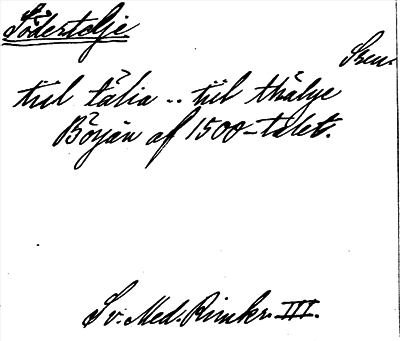 Södertelje
Sven.
tiil tålia .. tiil thålye
Början af 1500-talet.
Sv. Med. Rimkr. III.